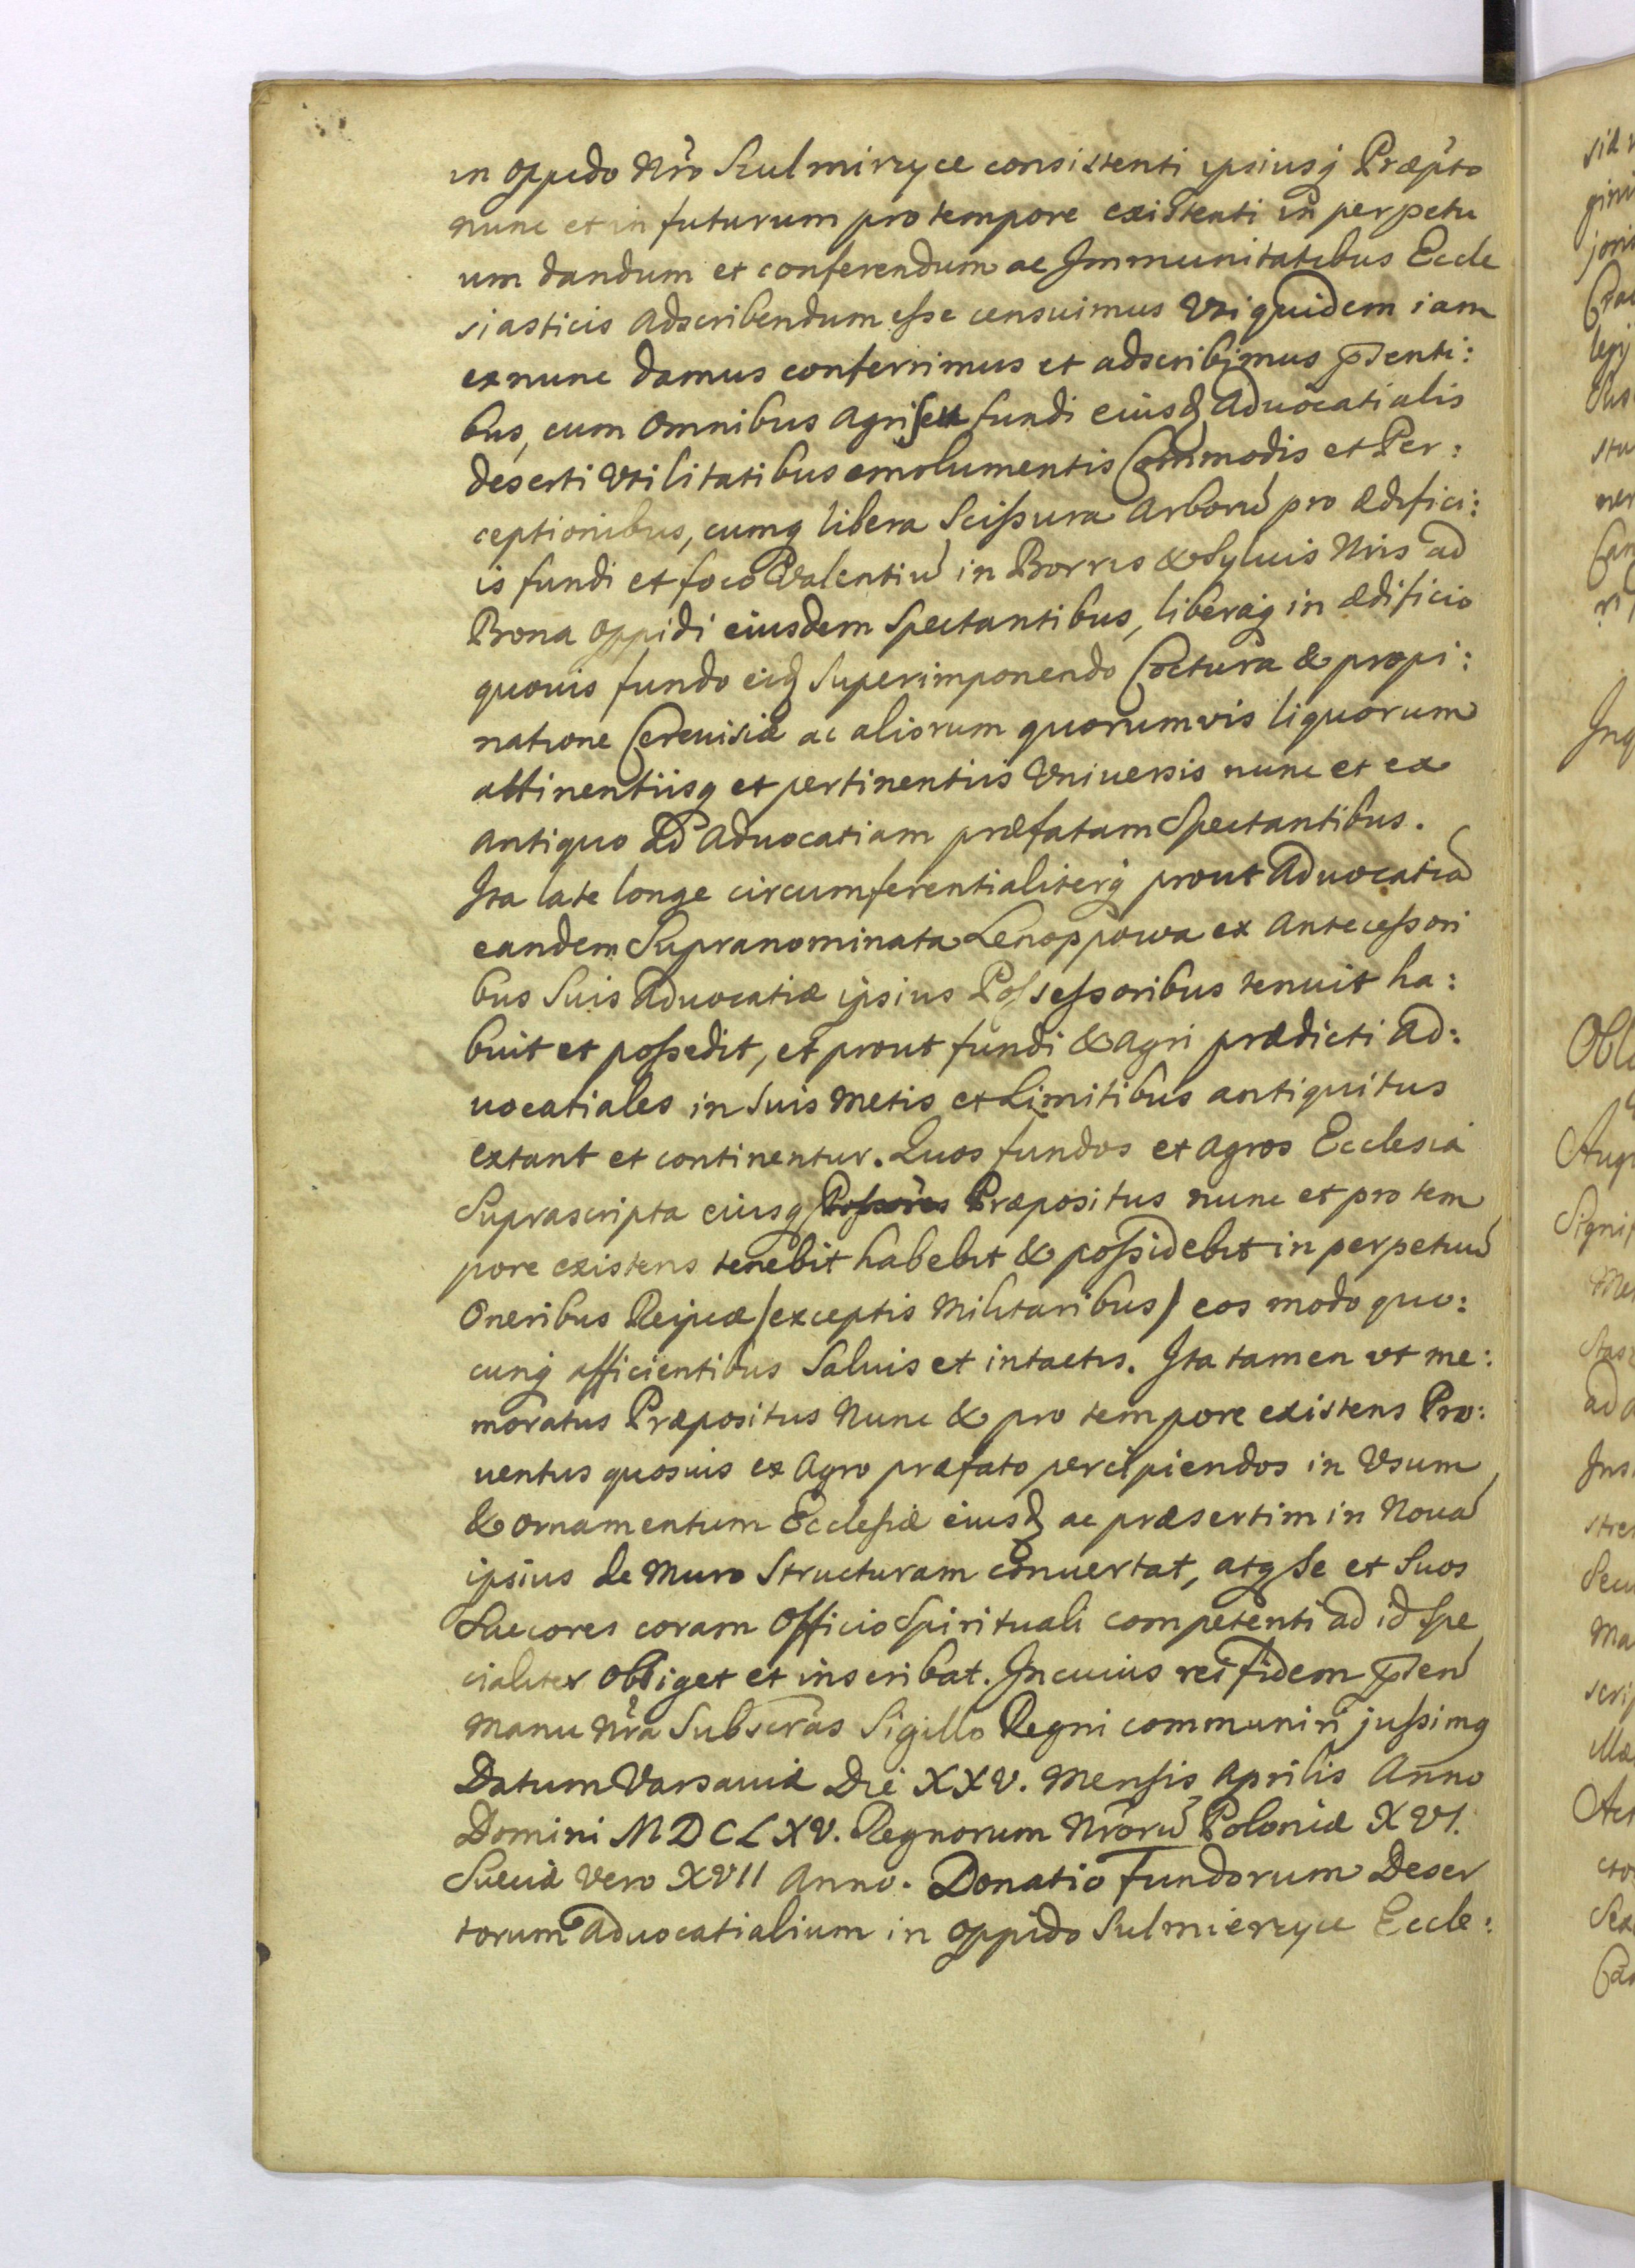 in oppido Nrõ Sculmirzyce consistenti ipsiusq Præptõ
nunc et in futurum pro tempore existenti in perpetu
um dandum et conferendum ac Immunitatibus Eccle
siasticis Adscribendum esse censuimus Vti quidem iam
ex nunc damus conferimus et adscribimus p̃senti:
bus, cum omnibus Agri seu fundi eiusd Aduocatialis
deserti Vtilitatibus emolumentis Commodis et Per:
ceptionibus, cumq libera Scissura Arborũ pro Ædifici:
is fundi et foco Valentiũ in Borris & Syluis Nris ad
Bona oppidi eiusdem Spectantibus, liberaq in Ædificio
quouis fundo eid Superimponendo Coctura & propi:
natione Cereuisiæ ac aliorum quorumvis liquorum
attinentiisq et pertinentiis Vniuersis nunc et ex
antiquo Ad Aduocatiam præfatam Spectantibus.
Ita late longe circumferentialiterq prout Aduocatiã
eandem Supranominata Lenoppowa ex Antecessori
bus Suis Aduocatiæ ipsius Possessoribus tenuit ha:
buit et possedit, et prout fundi & Agri prædicti Ad:
uocatiales in Suis Metis et Limitibus antiquitus
extant et continentur. Quos fundos et Agros Ecclesia
Suprascripta eiusq Præpositus nunc et pro tem
pore existens tenebit habebit & possidebit in perpetuũ
Oneribus Reipcæ / exceptis Militaribus / eos modo quo:
cunq afficientibus Saluis et intactis. Ita tamen vt me:
moratus Præpositus Nunc & pro tempore existens Pro:
uentus quosuis ex Agro præfato percipiendos in Vsum
& ornamentum Ecclesiæ eiusd ac præsertim in Nouã
ipsius de Muro Structuram conuertat, atq Se et Suos
Succores coram Officio Spirituali competenti ad id Spe
cialiter obliget et inscribat. In cuius rei fidem p̃sen
Manu Nrã Subscrãs Sigillo Regni communiri jussimq
Datum Varsauiæ Die XXV. Mensis Aprilis Anno
Domini MDCLXV. Regnorum Nrõrũ Poloniæ XVI.
Sueciæ Vero XVII Anno. Donatio Fundorum Deser
torum Aduocatialium in oppido Sulmierzyce Eccle: